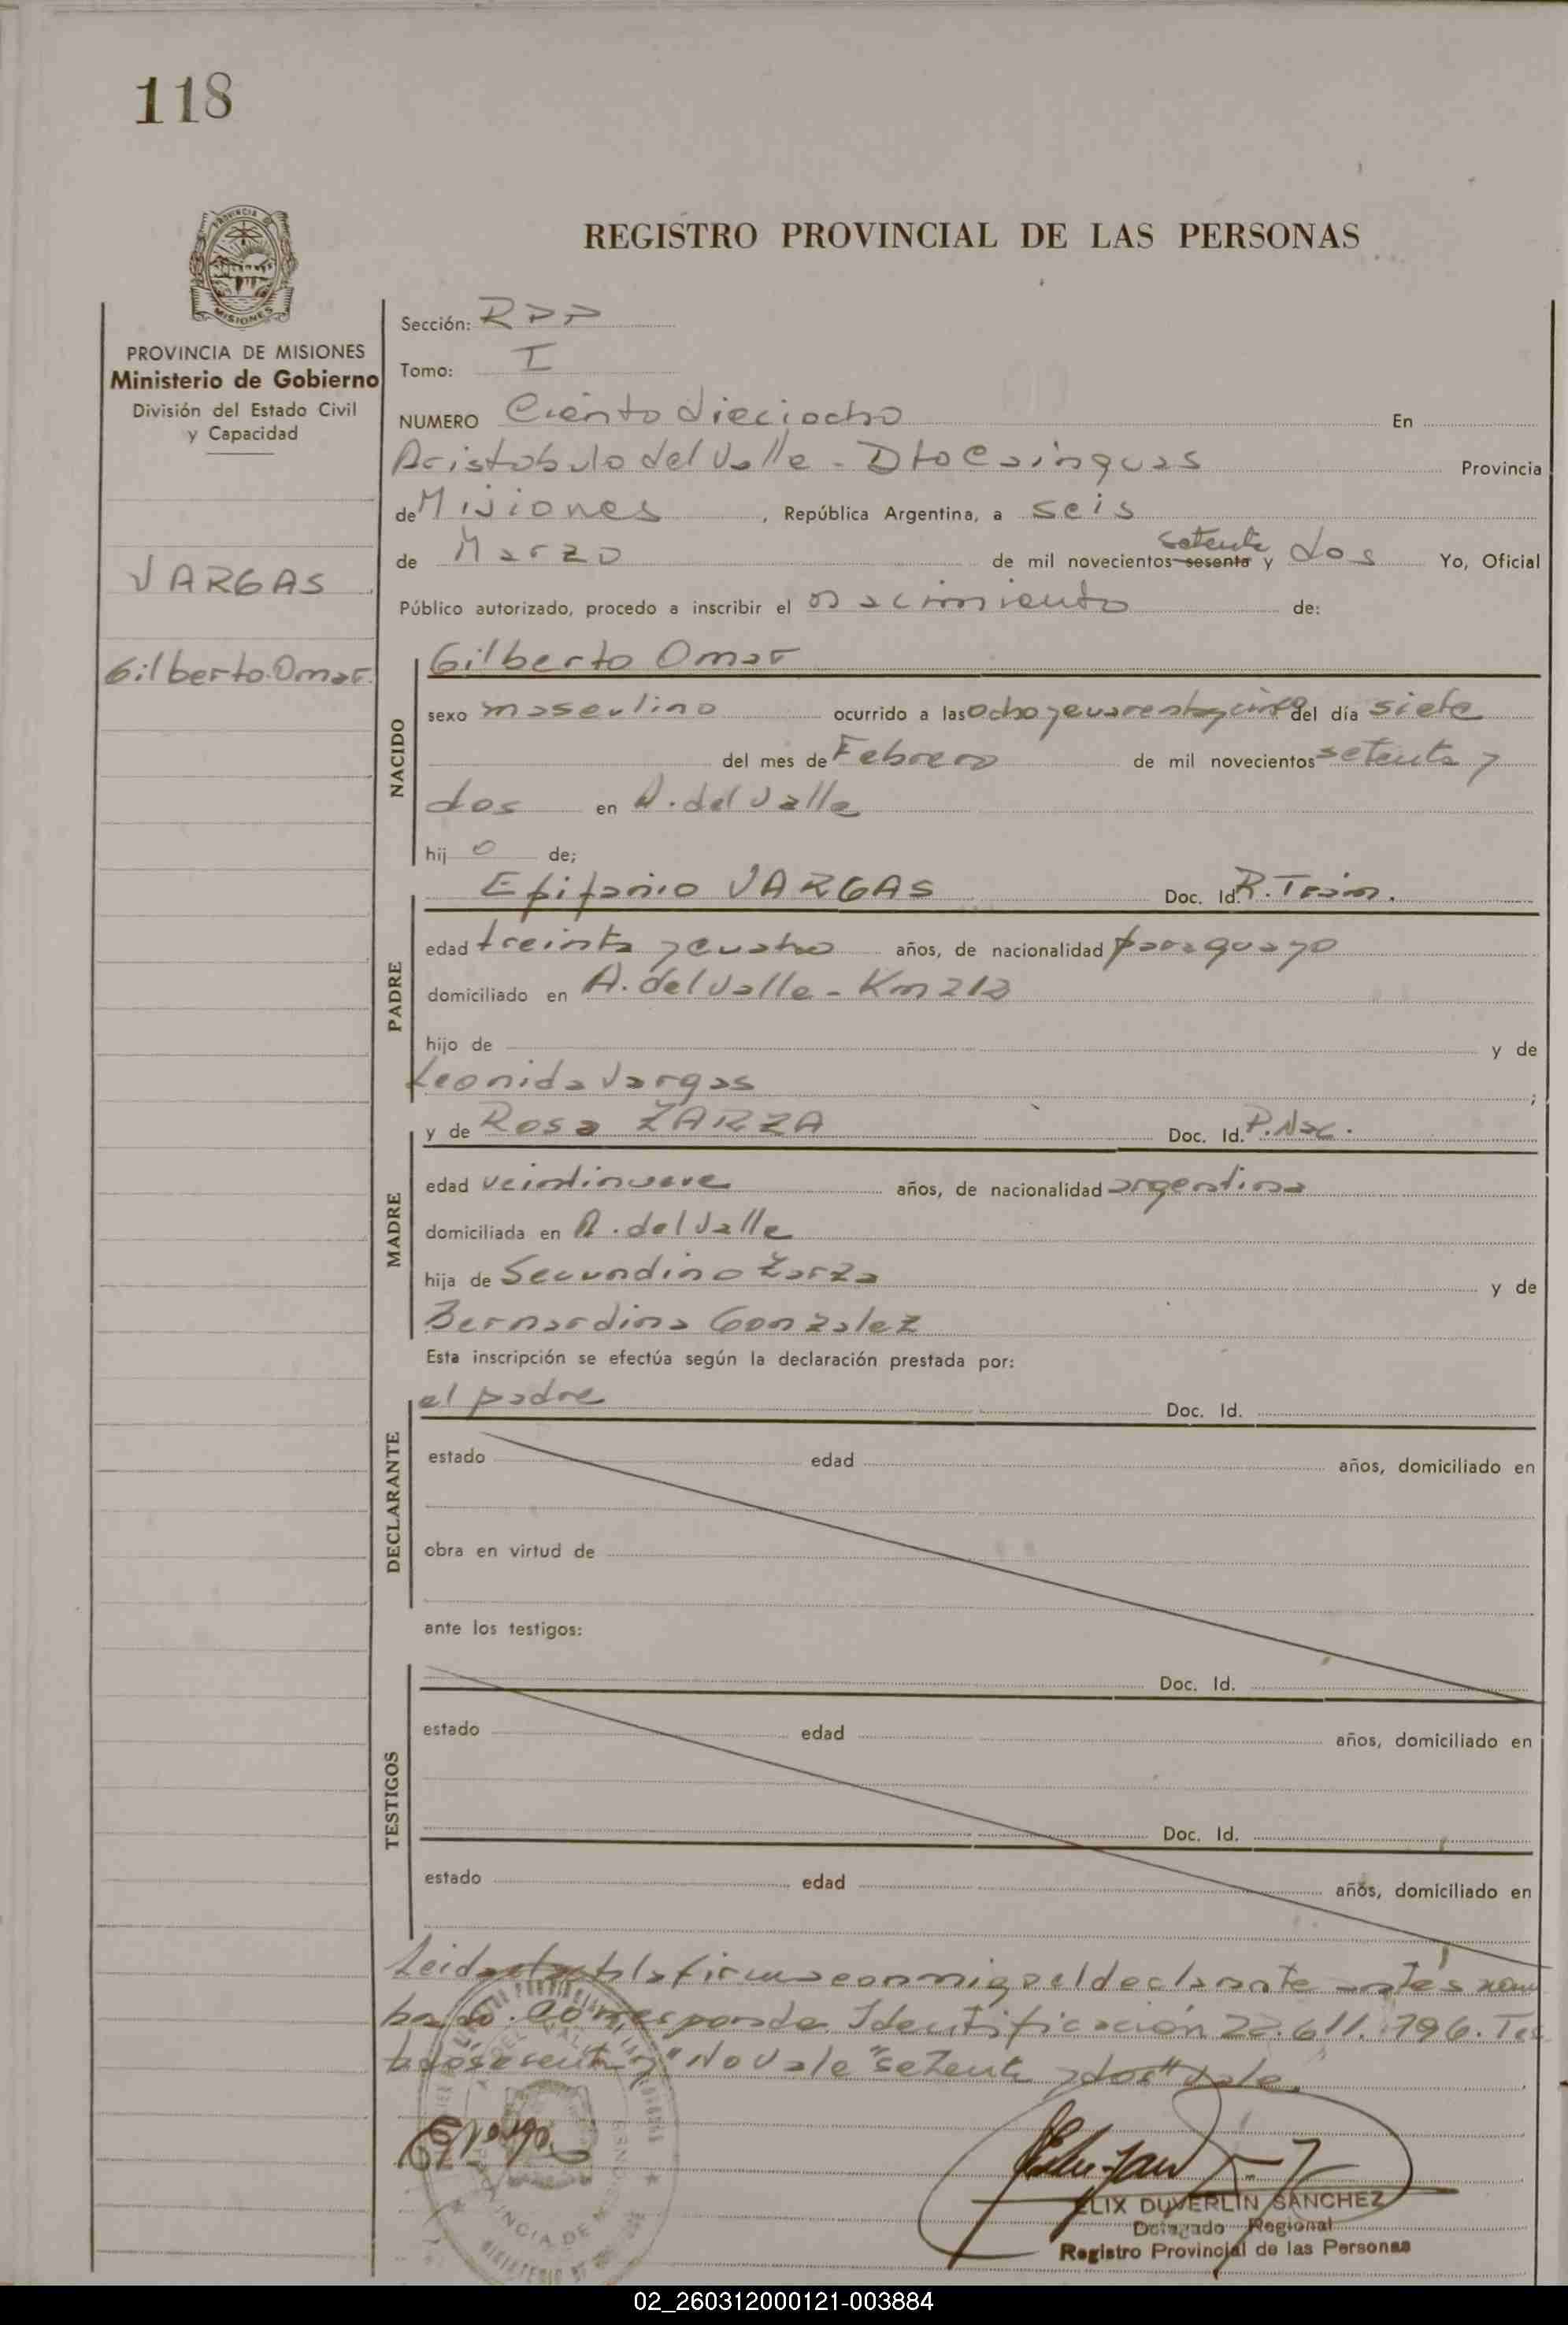 118
REGISTRO PROVINCIAL DE LAS PERSONAS
PROVINCIA DE MISIONES
Ministerio de Gobierno
División del Estado Civil
y Capacidad
VARGAS
Gilberto Omar.
Sección: RPP
Tomo: I
NUMERO Ciento dieciocho En
Aristobulo del Valle - Dto Cainguas Provincia
de Misiones, República Argentina, a seis
setenta
de Marzo de mil novecientos sesenta y dos Yo, Oficial
Público autorizado, procedo a inscribir el nacimiento de:
NACIDO
Gilberto Omar
sexo masculino ocurrido a las ocho y cuarenta y cinco del día siete
del mes de Febrero de mil novecientos setenta y
dos en A. del Valle
hijo de;
PADRE
Epifanio VARGAS Doc. Id. R.
edad treinta y cuatro años, de nacionalidad paraguayo
domiciliado en A. del Valle - Km
hijo de y de
Leonida Vargas ;
MADRE
y de Rosa ZARZA Doc. Id. P. Nac.
edad veintinueve años, de nacionalidad argentina
domiciliada en A. del Valle
hija de Secundino Zarza y de
Bernardina Gonzalez
Esta inscripción se efectúa según la declaración prestada por:
DECLARANTE
el padre Doc. Id.
estado edad años, domiciliado en
obra en virtud de
ante los testigos:
TESTIGOS
Doc. Id.
estado edad años, domiciliado en
Doc. Id.
estado edad años, domiciliado en
Leida el acta la firma conmigo el declarante antes nom
brado. Corresponde Identificación 22.611.796. Tes
tado sesenta y "No vale "setenta y dos" Vale.
ELIX DUVERLIN SANCHEZ
Delegado Regional
Registro Provincial de las Personas
02_260312000121-003884